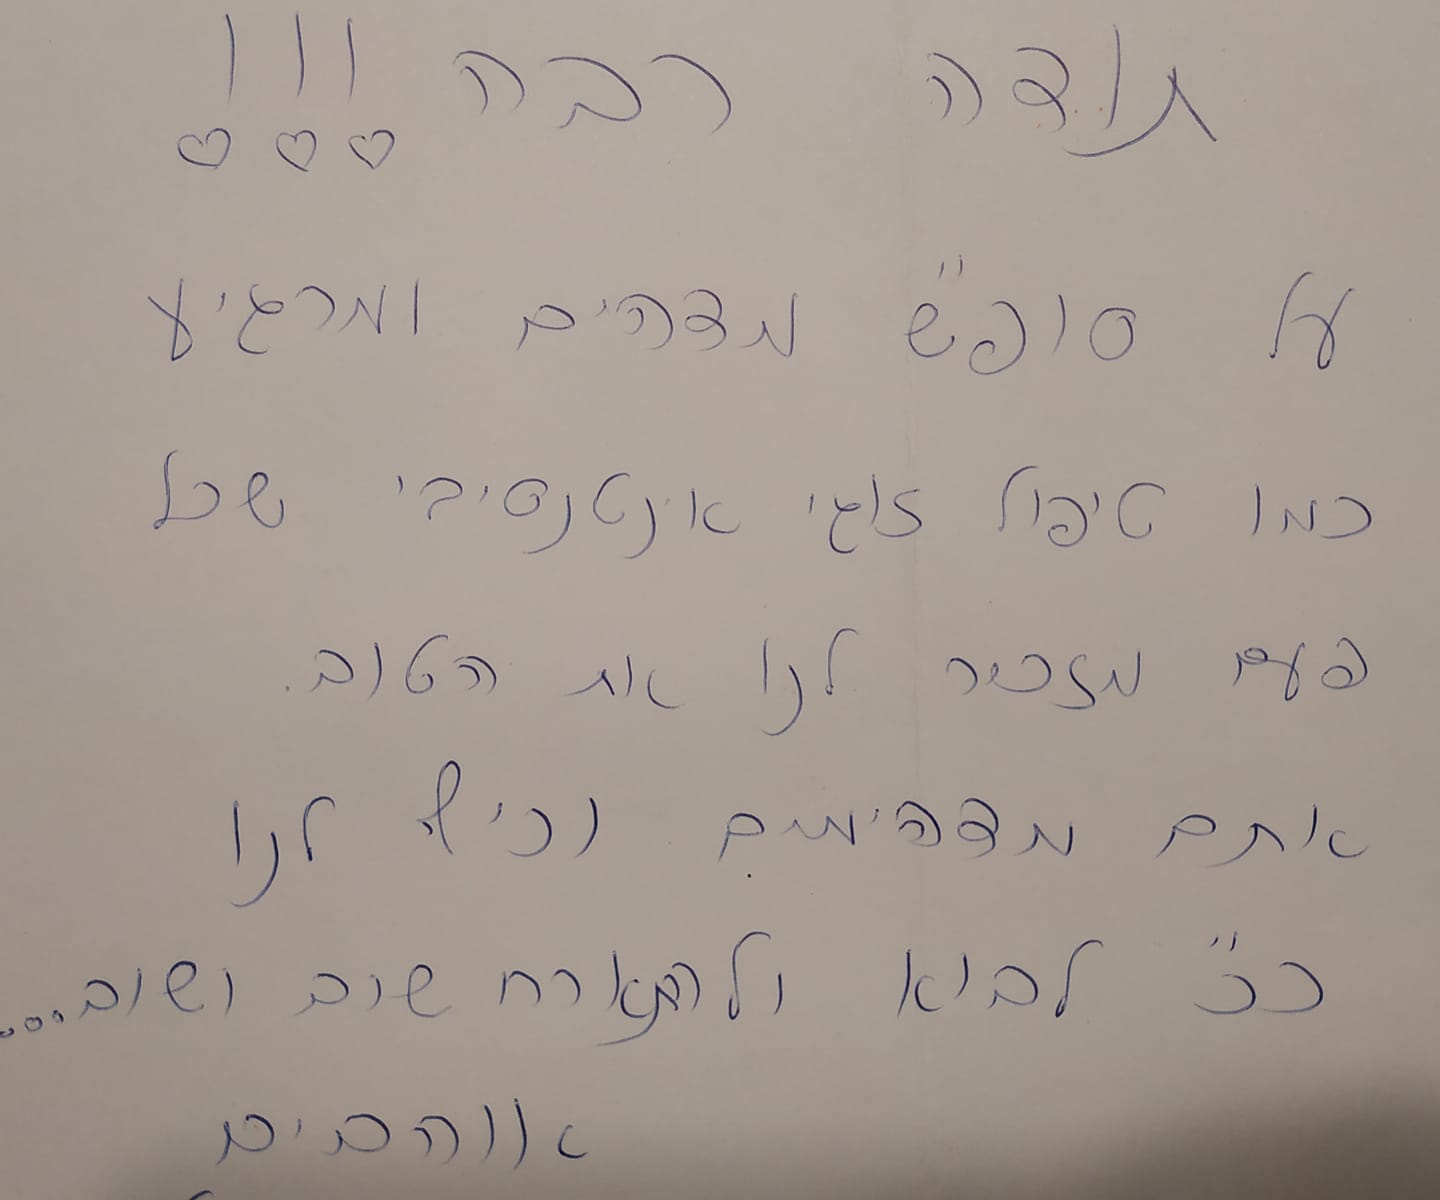 תודה רבה !!!
על סופ"ש מדהים ומרגיע
כמו טיפול זוגי אינטנסיבי שכל
פעם מזכיר לנו את הטוב.
אתם מדהימים וכיף לנו
ככ" לבוא ולהתארח שוב ושוב...
אוהבים